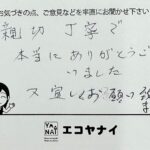 お気づきの点、ご意見などを率直にお聞かせ下さい
親切丁寧で
本当にありがとうござ
いました
又宜しくお願い致
YANAI
エコヤナイ